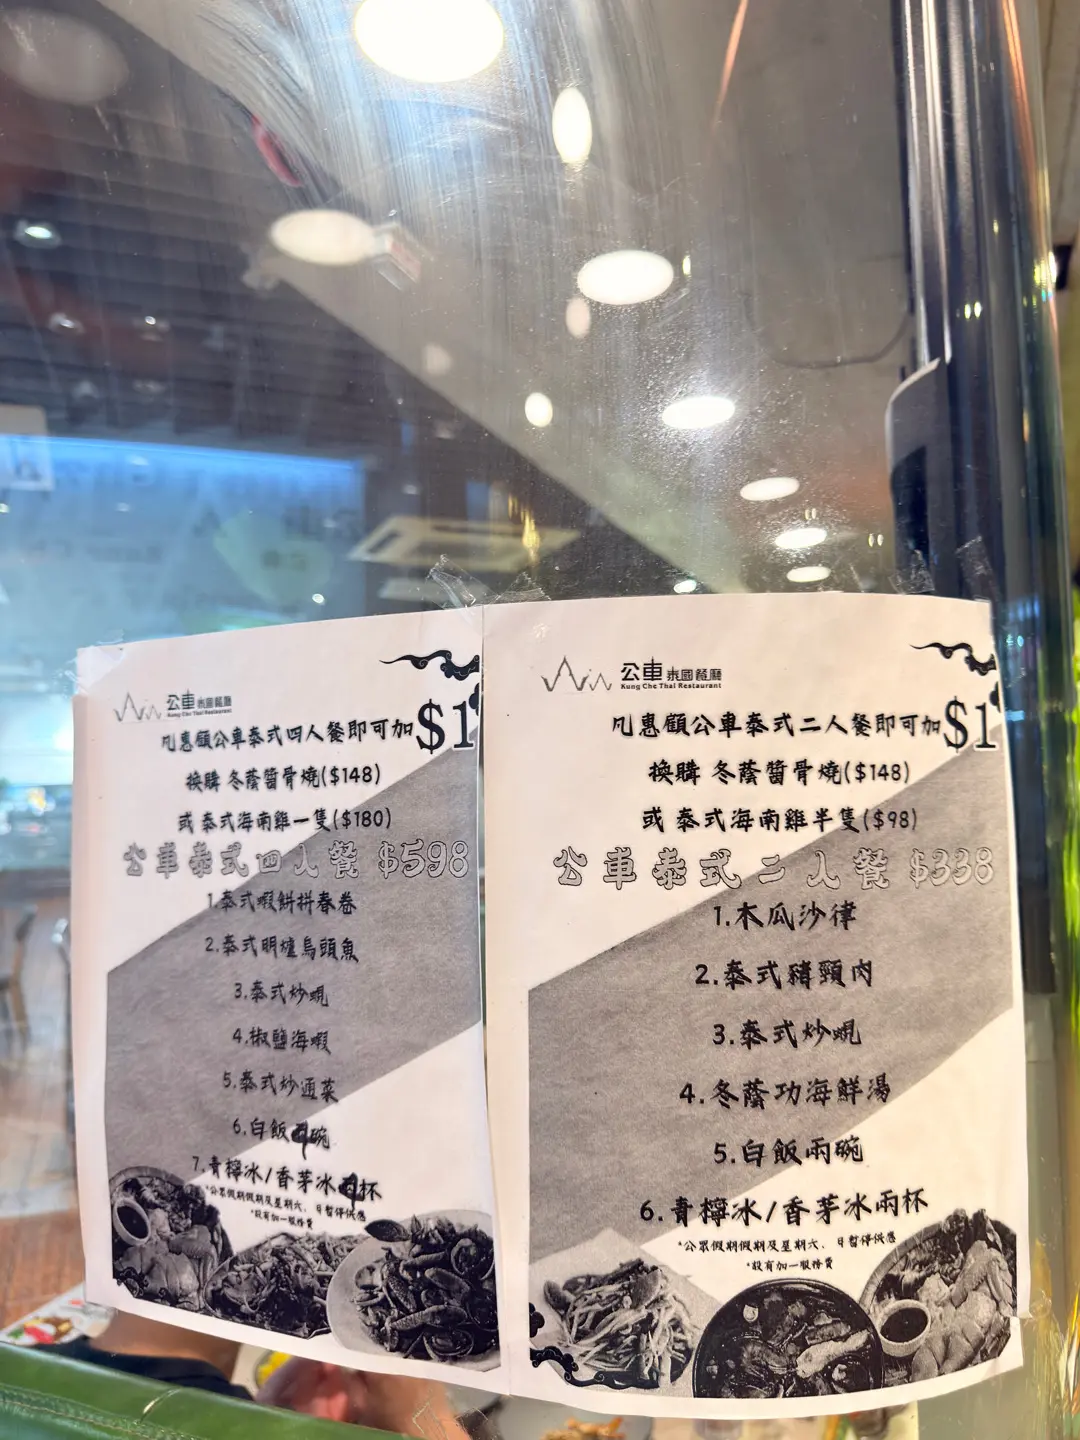 公車泰國餐廳
Kung Che Thai Restaurant
凡惠顧公車泰式四人餐即可加$1
換購 冬蔭醬骨燒($148)
或 泰式海南雞一隻($180)
公車泰式四人餐 $598
1.泰式蝦餅拼春卷
2.泰式明爐烏頭魚
3.泰式炒蜆
4.椒鹽海蝦
5.泰式炒通菜
6.白飯四碗
7.青檸冰/香茅冰四杯
*公眾假期假期及星期六、日暫停供應
*設有加一服務費
公車泰國餐廳
Kung Che Thai Restaurant
凡惠顧公車泰式二人餐即可加$1
換購 冬蔭醬骨燒($148)
或 泰式海南雞半隻($98)
公車泰式二人餐 $338
1.木瓜沙律
2.泰式豬頸肉
3.泰式炒蜆
4.冬蔭功海鮮湯
5.白飯兩碗
6.青檸冰/香茅冰兩杯
*公眾假期假期及星期六、日暫停供應
*設有加一服務費